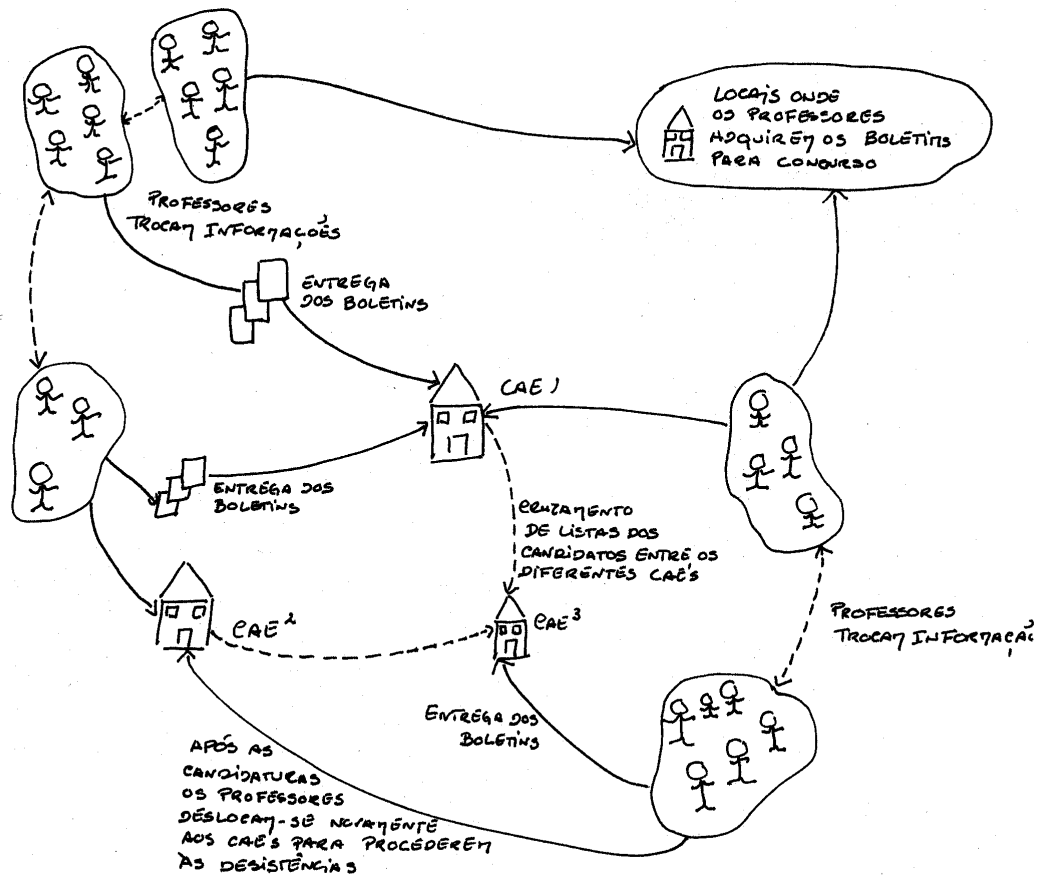 LOCAIS ONDE
OS PROFESSORES
ADQUIREM OS BOLETINS
PARA CONCURSO
PROFESSORES
TROCAM INFORMAÇÕES
ENTREGA
DOS BOLETINS
CAE 1
ENTREGA DOS
BOLETINS
CRUZAMENTO
DE LISTAS DOS
CANDIDATOS ENTRE OS
DIFERENTES CAE'S
CAE 2
CAE 3
PROFESSORES
TROCAM INFORMAÇÃ
ENTREGA DOS
BOLETINS
APÓS AS
CANDIDATURAS
OS PROFESSORES
DESLOCAM-SE NOVAMENTE
AOS CAE'S PARA PROCEDEREM
ÀS DESISTÊNCIAS